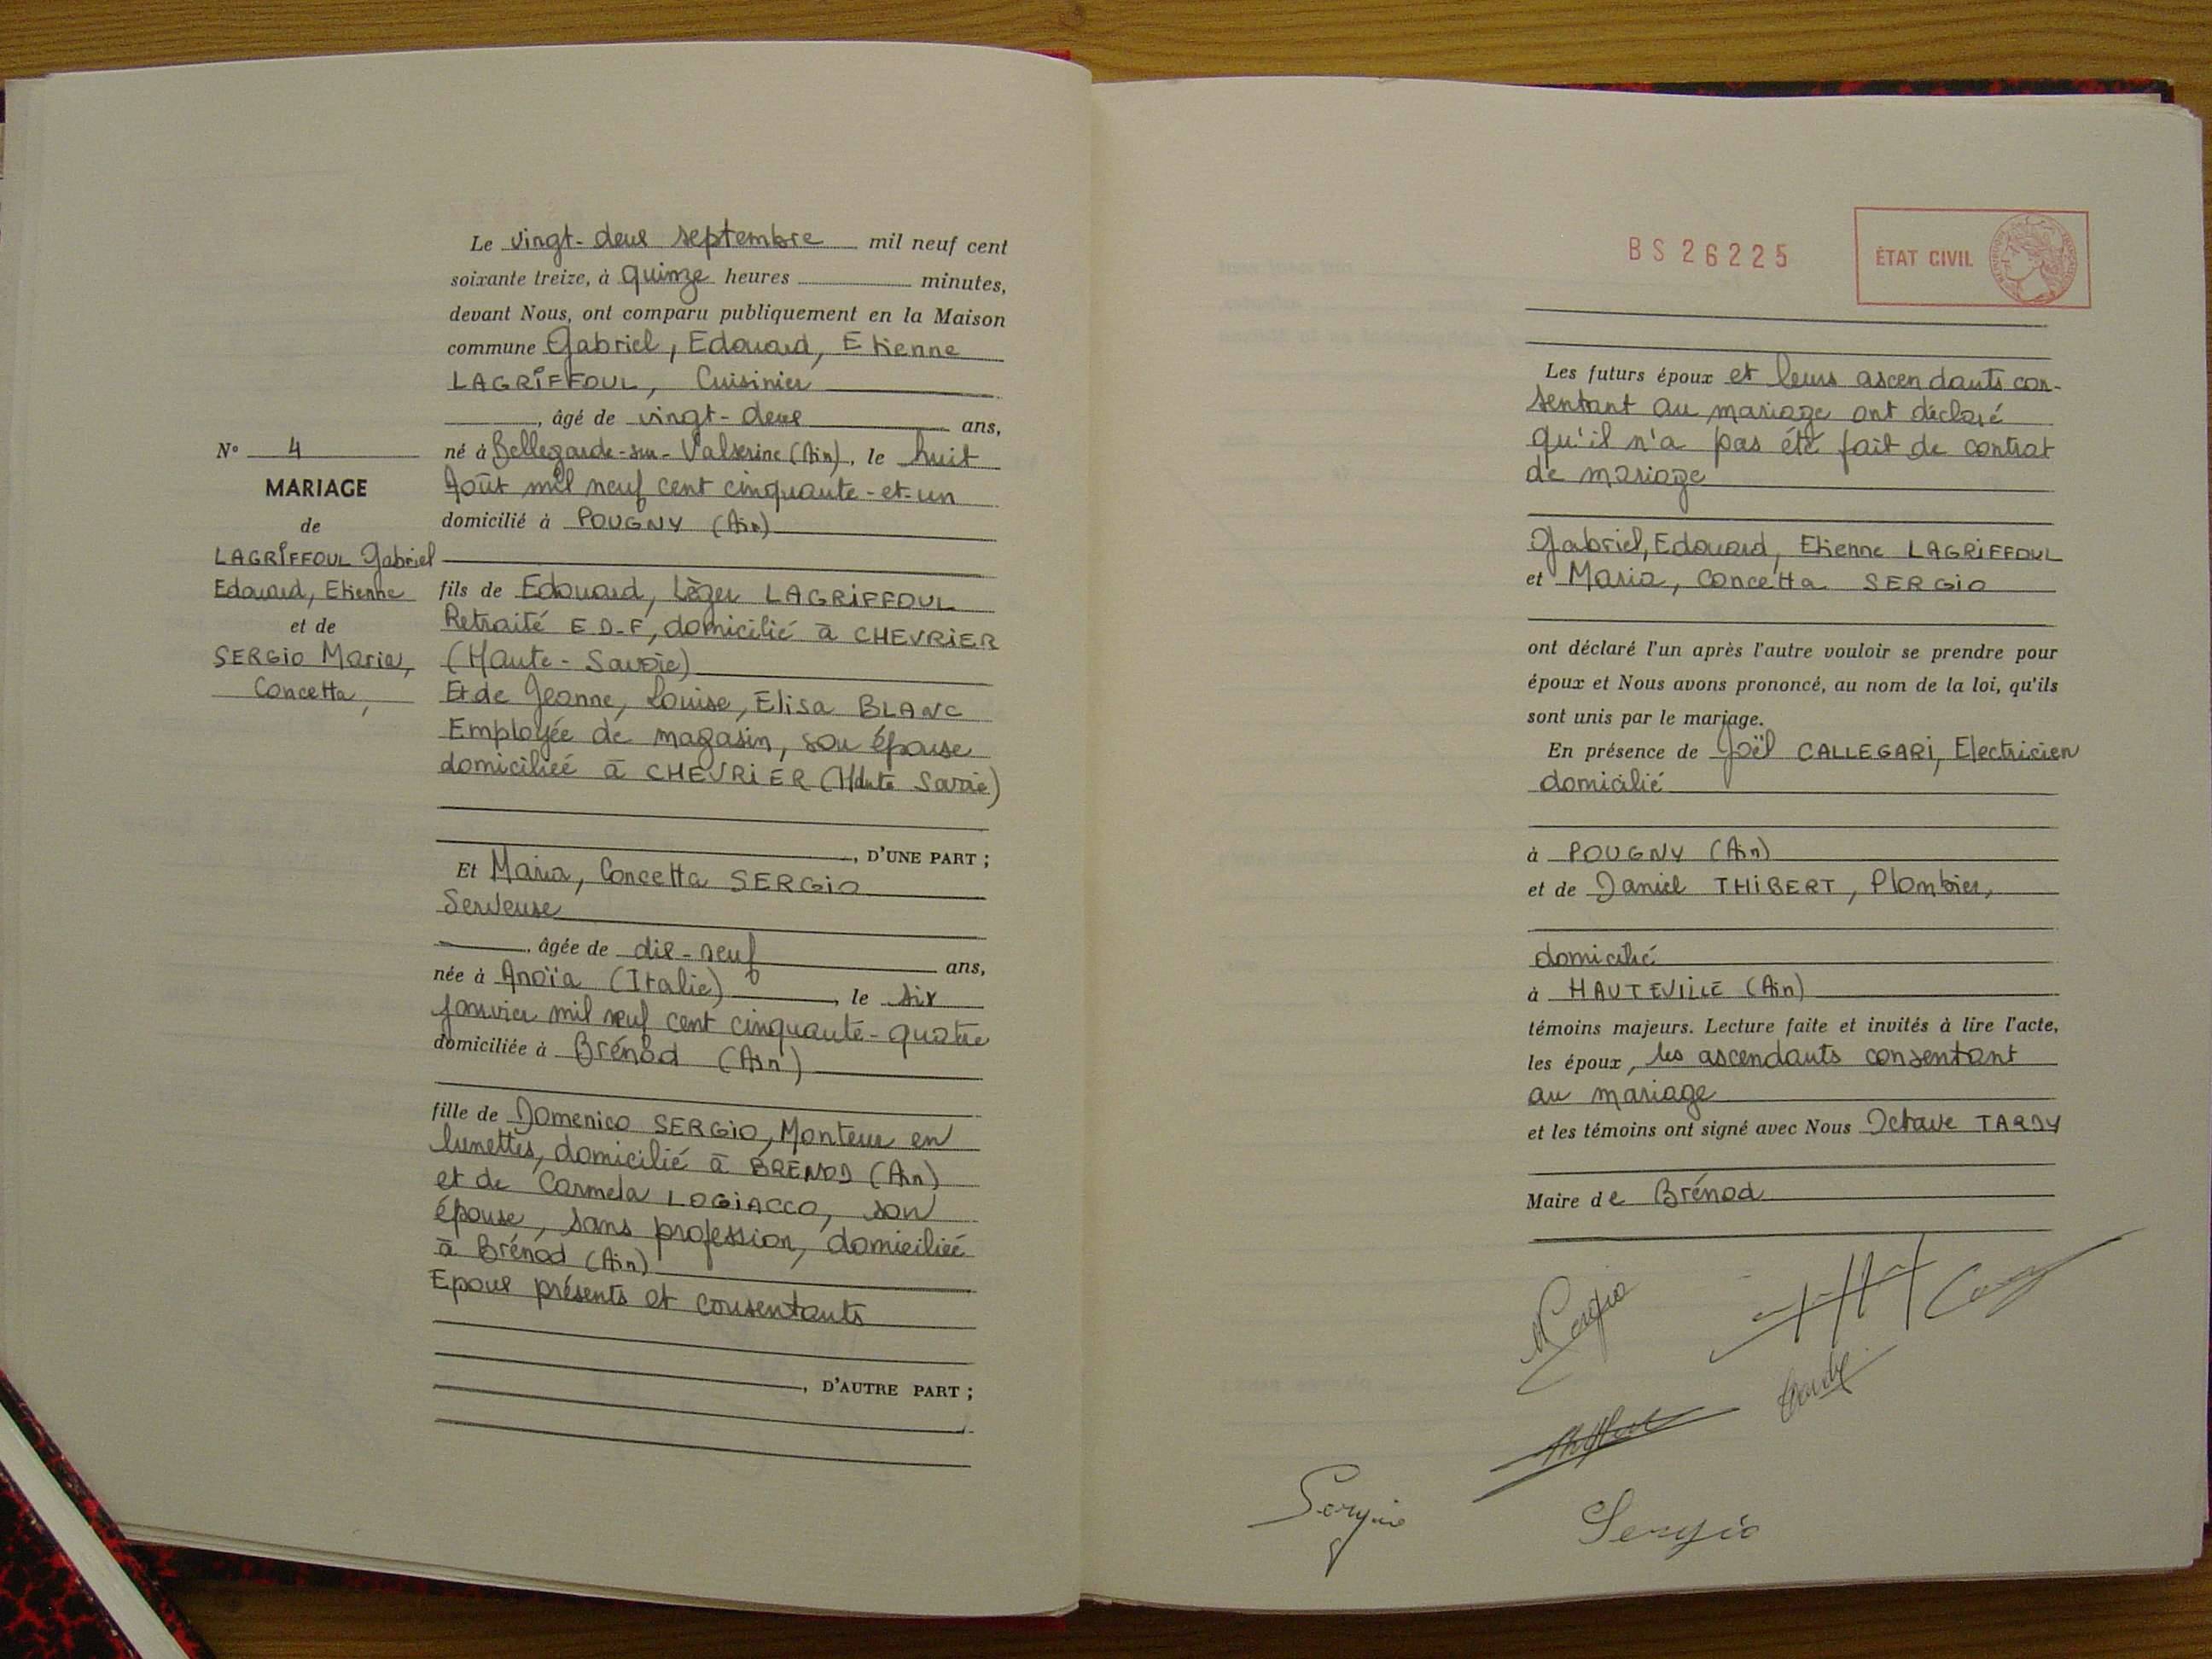 Le vingt-deux septembre mil neuf cent
soixante treize, à quinze heures minutes,
devant Nous, ont comparu publiquement en la Maison
commune Gabriel, Edouard, Etienne
LAGRIFFOUL, Cuisinier
, âgé de vingt-deux ans,
né à Bellegarde-sur-Valserine (Ain), le huit
Août mil neuf cent cinquante-et-un
domicilié à POUGNY (Ain)
fils de Edouard, Lèger LAGRIFFOUL
Retraité E.D.F, domicilié à CHEVRIER
(Haute-Savoie)
Et de Jeanne, Louise, Elisa BLANC
Employée de magasin, son épouse
domiciliée à CHEVRIER (Haute Savoie)
, D'UNE PART ;
Et Maria, Concetta SERGIO
Serveuse
, âgée de dix-neuf ans,
née à Anoïa (Italie), le six
janvier mil neuf cent cinquante-quatre
domiciliée à Brénod (Ain)
fille de Domenico SERGIO, Monteur en
lunettes, domicilié à BRENOD (Ain)
et de Carmela LOGIACCO, son
épouse, sans profession, domiciliée
à Brénod (Ain)
Epoux présents et consentants
, D'AUTRE PART ;
N° 4
MARIAGE
de
LAGRIFFOUL Gabriel
Edouard, Etienne
et de
SERGIO Maria,
Concetta,
BS 26225
ÉTAT CIVIL
Les futurs époux et leurs ascendants con-
sentant au mariage ont déclaré
qu'il n'a pas été fait de contrat
de mariage
Gabriel, Edouard, Etienne LAGRIFFOUL
et Maria, Concetta SERGIO
ont déclaré l'un après l'autre vouloir se prendre pour
époux et Nous avons prononcé, au nom de la loi, qu'ils
sont unis par le mariage.
En présence de Joël CALLEGARI, Electricien
domicilié
à POUGNY (Ain)
et de Daniel THIBERT, Plombier,
domicilié
à HAUTEVILLE (Ain)
témoins majeurs. Lecture faite et invités à lire l'acte,
les époux, les ascendants consentant
au mariage
et les témoins ont signé avec Nous Octave TARDY
Maire de Brénod
Sergio
Sergio